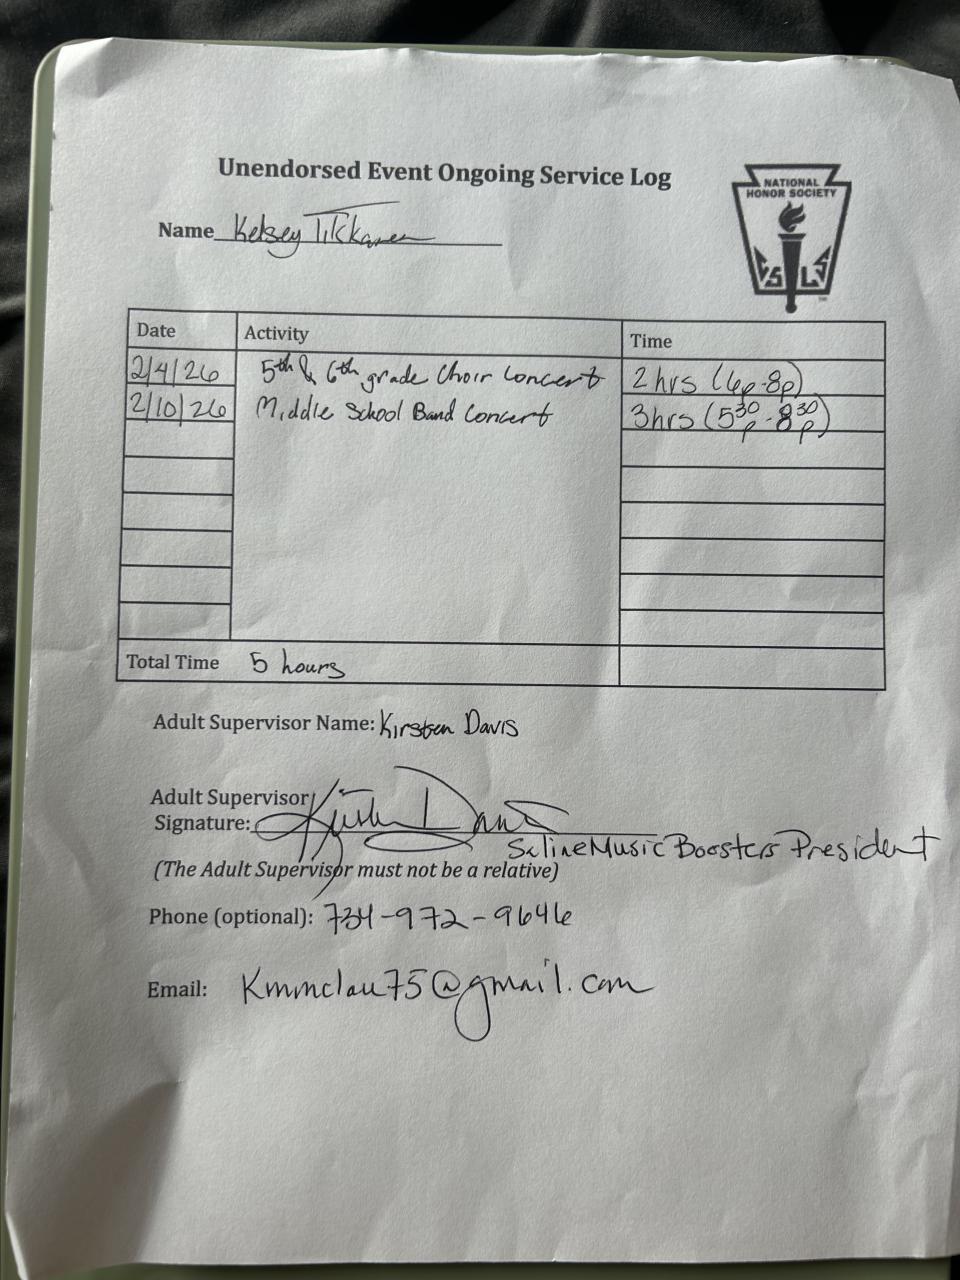 Unendorsed Event Ongoing Service Log
NATIONAL
HONOR SOCIETY
Name Kelsey Tikkanen
C S L S
Date Activity Time
2/4/26 5th & 6th grade Choir Concert 2 hrs (6p-8p)
2/10/26 Middle School Band Concert 3hrs (530p-830p)
Total Time 5 hours
Adult Supervisor Name: Kirsten Davis
Adult Supervisor
Signature: Kirsten Davis
Saline Music Boosters President
(The Adult Supervisor must not be a relative)
Phone (optional): 734-972-9646
Email: Kmmclau75@gmail.com